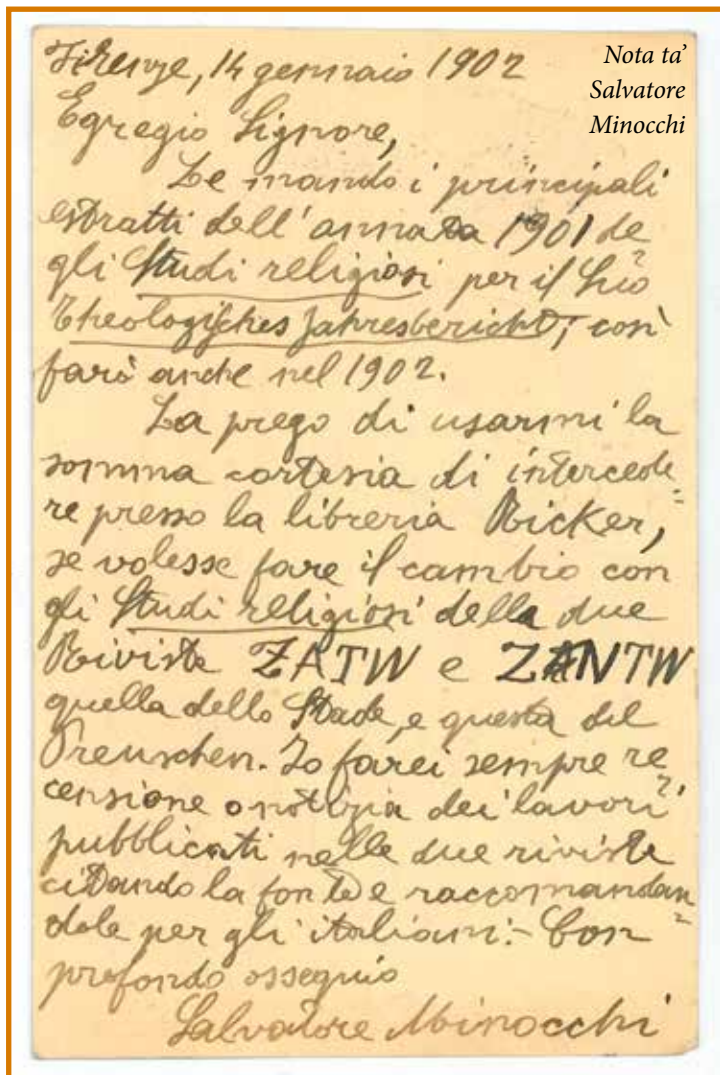 Nota ta’
Salvatore
Minocchi
Firenze, 14 gennaio 1902
Egregio Signore,
Le mando i principali
estratti dell'annata 1901 de
gli Studi religiosi per il Suo
Theologisches Jahresbericht; così
farò anche nel 1902.
La prego di usarmi la
somma cortesia di intercede=
re presso la libreria Ricker,
se volesse fare il cambio con
gli Studi religiosi della due
Riviste ZATW e ZANTW
quella dello Stade, e questa del
Preuschen. Io farei sempre re=
censione o notizia dei lavori
pubblicati nelle due riviste
citando la fonte e raccomandan=
dole per gli italiani:- Con
profondo ossequio
Salvatore Minocchi